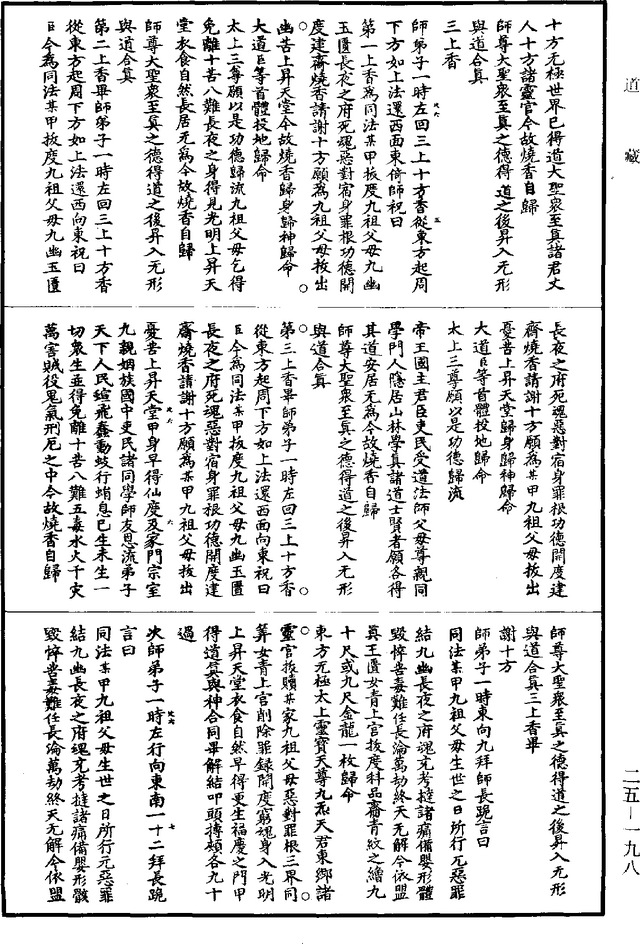 道藏
十方无極世界已得道大聖衆至真諸君丈
人十方諸靈官今故燒香自歸
師尊大聖衆至真之德得道之後昇入无形
與道合真
三上香
師弟子一時左回三上十方香從東方起周
下方如上法還西面東倚師祝曰
第一上香為同法某甲拔度九祖父母九幽
玉匱長夜之府死魂惡對宿身罪根功德開
度建齋燒香請謝十方願為九祖父母拔出
幽苦上昇天堂今故燒香歸身歸神歸命
大道臣等首體投地歸命
太上三尊願以是功德歸流九祖父母乞得
免離十苦八難長夜之身得見光明上昇天
堂衣食自然長居无為今故燒香自歸
師尊大聖衆至真之德得道之後昇入无形
與道合真
第二上香畢師弟子一時左回三上十方香
從東方起周下方如上法還西向東祝曰
臣今為同法某甲拔度九祖父母九幽玉匱
長夜之府死魂惡對宿身罪根功德開度建
齋燒香請謝十方願為某甲九祖父母拔出
憂苦上昇天堂歸身歸神歸命
大道臣等首體投地歸命
太上三尊願以是功德歸流
帝王國主君臣吏民受道法師父母尊親同
學門人隱居山林學真諸道士賢者願各得
其道安居无為今故燒香自歸
師尊大聖衆至真之德得道之後昇入无形
與道合真
第三上香畢師弟子一時左回三上十方香
從東方起周下方如上法還西面向東祝曰
臣今為同法某甲拔度九祖父母九幽玉匱
長夜之府死魂惡對宿身罪根功德開度建
齋燒香請謝十方願為某甲九祖父母拔出
憂苦上昇天堂甲身早得仙度及家門宗室
九親姻族國中吏民諸同學師友恩流弟子
天下人民蝖飛蠢動蚑行蜎息已生未生一
切衆生並得免離十苦八難五毒水火千灾
萬害賊役鬼氣刑厄之中今故燒香自歸
師尊大聖衆至真之德得道之後昇入无形
與道合真三上香畢
謝十方
師弟子一時東向九拜師長跪言曰
同法某甲九祖父母生世之日所行元惡罪
結九幽長夜之府魂充考撻諸痛備嬰形體
毀悴苦毒難任長淪萬劫終天无解今依盟
真玉匱女青上宮拔度科品齋青紋之繒九
十尺或九尺金龍一枚歸命
東方无極太上靈寶天尊九炁天君東鄉諸
靈官拔贖某家九祖父母惡對罪根三界司
筭女青上宮削除罪録開度窮魂身入光明
上昇天堂衣食自然早得更生福慶之門甲
得道真與神合同畢解結叩頭搏頰各九十
過
次師弟子一時左行向東南一十二拜長跪
言曰
同法某甲九祖父母生世之日所行元惡罪
結九幽長夜之府魂充考撻諸痛備嬰形骸
毀悴苦毒難任長淪萬劫終天无解今依盟
二五—一九八